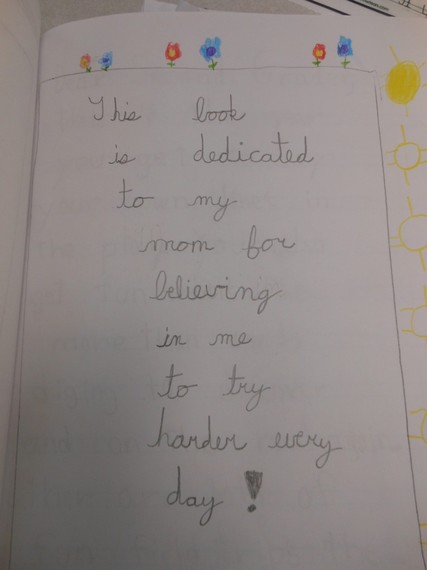 This book
is dedicated
to my
mom for
believing
in me
to try
harder every
day!